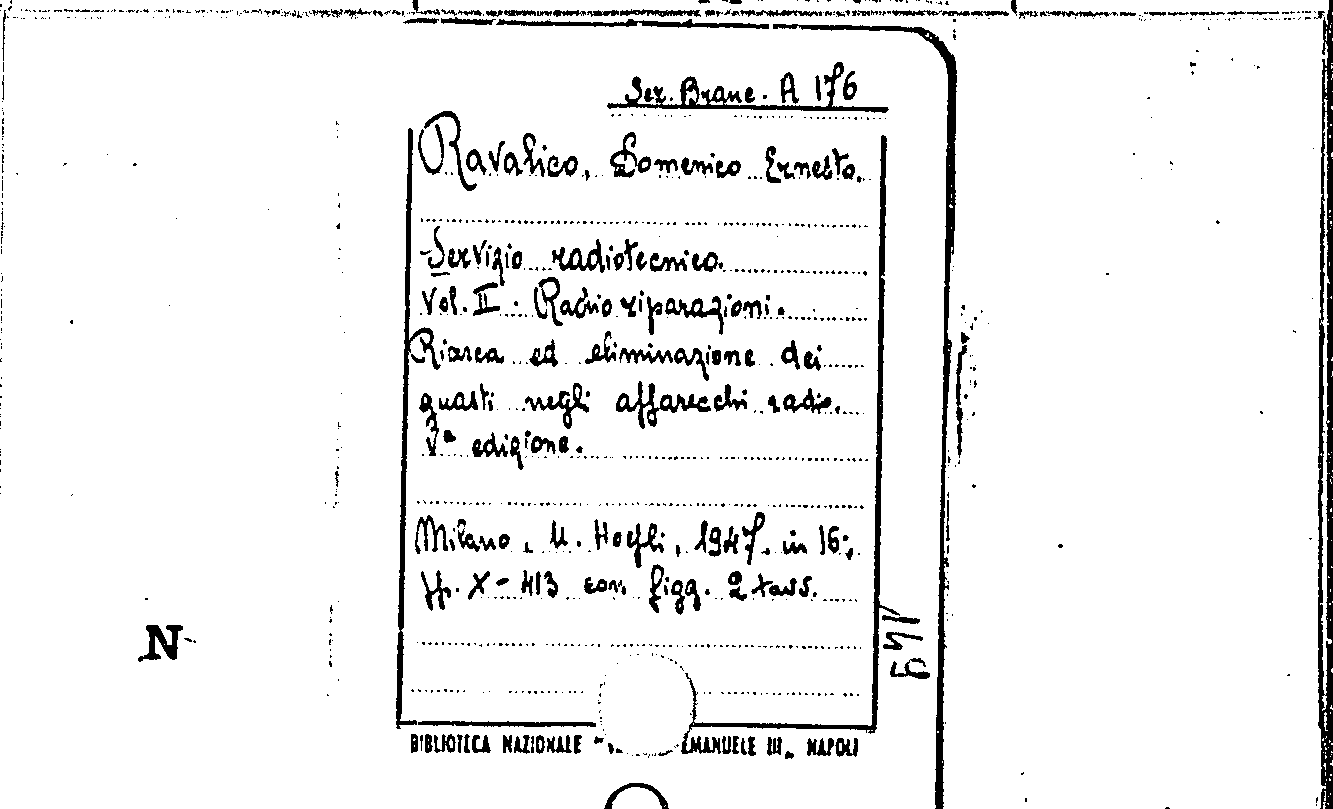 Ser. Branc. A 176
Ravalico, Domenico Ernesto.
Servizio radiotecnico.
Vol. II. Radio riparazioni.
Ricerca ed eliminazione dei
guasti negli apparecchi radio.
edizione.
Milano, U. Hoepli, 1947. in 16°,
pp. X-413 con figg. 2 tavv.
149
N
BIBLIOTECA NAZIONALE " EMANUELE III„ NAPOLI